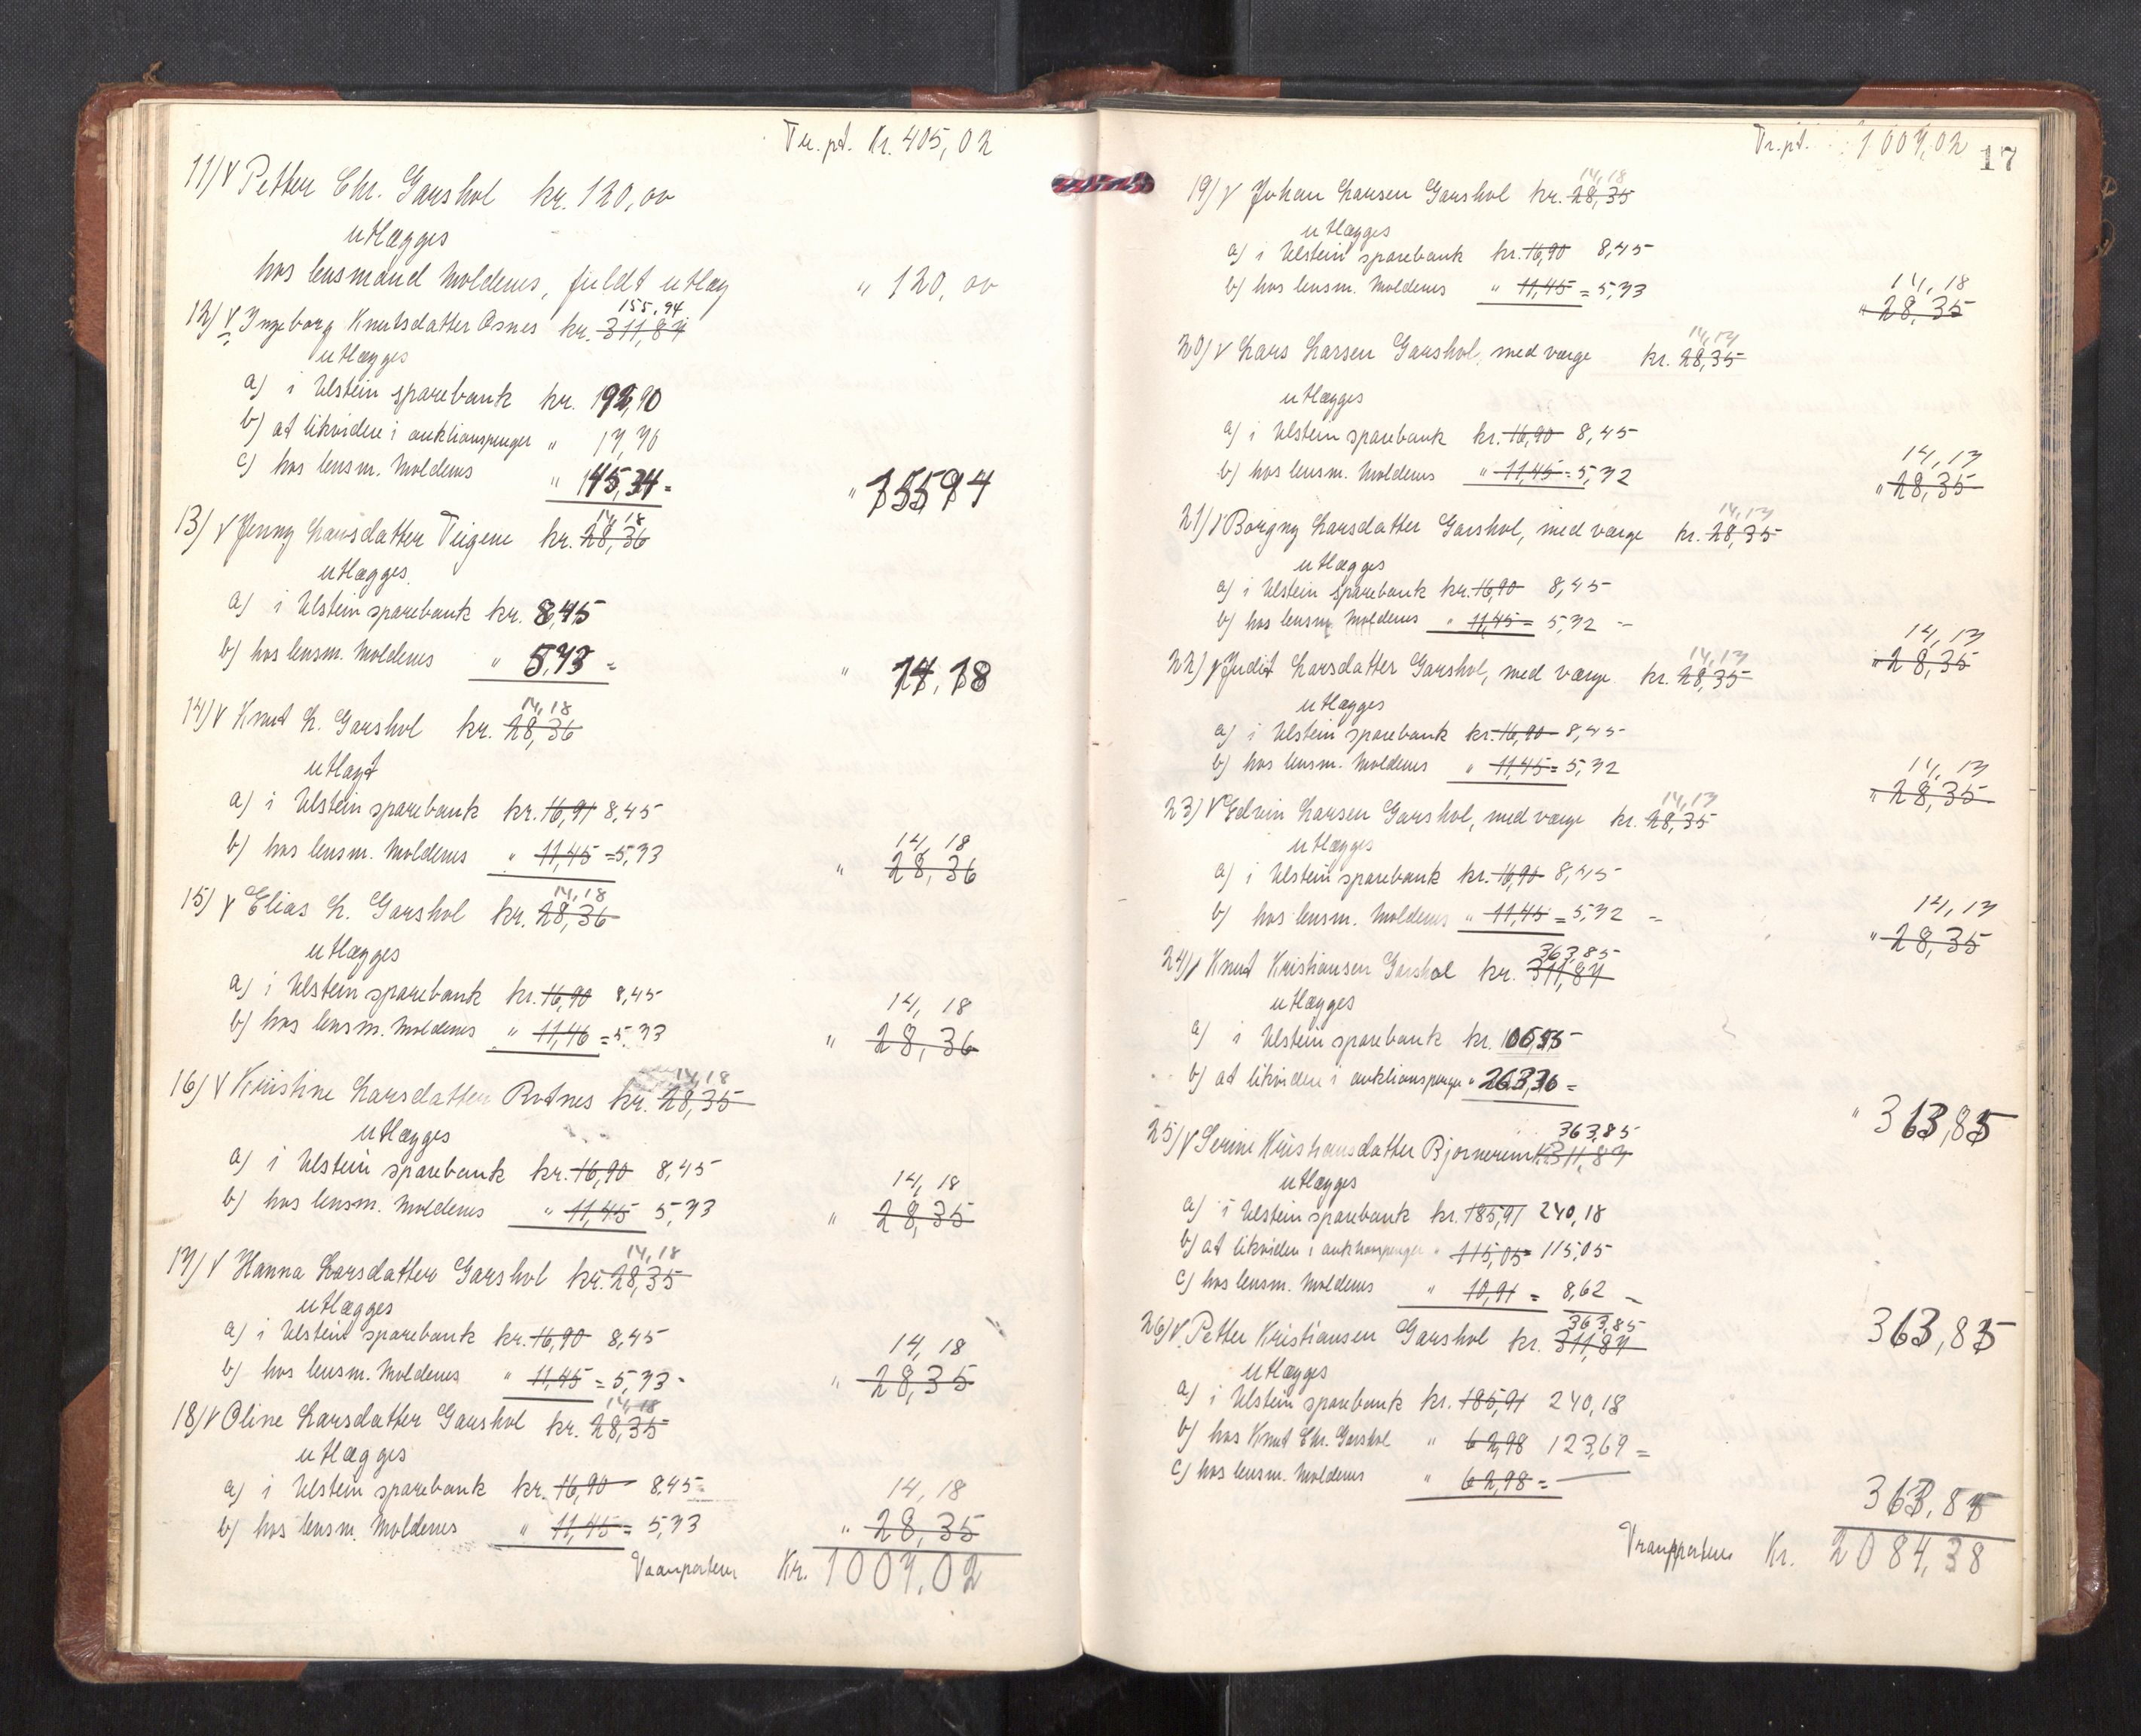 Tr. pt. Kr. 405,02
11/ V Petter Chr. Garshol kr. 120,00
utlægges
hos lensmand Moldenes, fuldt utlæg " 120,00
155,94
12/ V Ingeborg Knutsdatter Osnes kr. 311,87
utlægges
a) i Ulstein sparebank kr.
b) at likvidere i auktionspenger "
c) hos lensm. Moldenes "
14,18
13) V Jenny Larsdatter Teigene kr. 28,36
utlægges
a) i Ulstein sparebank kr. 8,45
b) hos lensm. Moldenes " 5,73 =
" 14,18
14,18
14/ V Knut L. Garshol kr. 28,36
utlagt
a) i Ulstein sparebank kr. 16,91 8,45
b) hos lensm. Moldenes " 11,45 = 5,73
14,18
" 28,36
14,18
15) V Elias L. Garshol kr. 28,36
utlægges
a) i Ulstein sparebank kr. 16,90 8,45
b) hos lensm. Moldenes " 11,46 = 5,73
14,18
" 28,36
14,18
16) V Kristine Larsdatter Rotnes kr. 28,35
utlægges
a) i Ulstein sparebank kr. 16,90 8,45
b) hos lensm. Moldenes " 11,45 5,73
14,18
" 28,35
14,18
17) V Hanna Larsdatter Garshol kr. 28,35
utlægges
a) i Ulstein sparebank kr. 16,90 8,45
b) hos lensm. Moldenes " 11,45 = 5,73 -
14,18
" 28,35
14,18
18) V Oline Larsdatter Garshol kr. 28,35
utlægges
a) i Ulstein sparebank kr. 16,90 8,45 =
b) hos lensm. Moldenes " 11,45 = 5,73
14,18
" 28,35
Transporteres Kr. 1007,02
Tr. pt. 1007,02
17
14,18
19) V Johan Larsen Garshol kr. 28,35
utlægges
a) i Ulstein sparebank kr. 16,90 8,45
b) hos lensm. Moldenes " 11,45 = 5,73
14,18
" 28,35
14,17
20) V Lars Larsen Garshol, med værge kr. 28,35
utlægges
a) i Ulstein sparebank kr. 16,90 8,45
b) hos lensm. Moldenes " 11,45 = 5,72
14,17
" 28,35
14,17
21) V Borgny Larsdatter Garshol, med værge kr. 28,35
utlægges
a) i Ulstein sparebank kr. 16,90 8,45
b) hos lensm. Moldenes " 11,45 = 5,72 -
14,17
" 28,35
14,17
22) V Judit Larsdatter Garshol, med værge kr. 28,35
utlægges
a) i Ulstein sparebank kr. 16,90 8,45
b) hos lensm. Moldenes " 11,45 = 5,72
14,17
" 28,35
14,17
23) V Edvin Larsen Garshol, med værge kr. 28,35
utlægges
a) i Ulstein sparebank kr. 16,90 8,45
b) hos lensm. Moldenes " 11,45 = 5,72 -
14,17
" 28,35
363,85
24) V Knut Kristiansen Garshol kr. 311,87
utlægges
a) i Ulstein sparebank kr.
b) at likvidere i auktionspenger "
" 363,85
363,85
25) V Serine Kristiansdatter Bjørnerem kr. 311,87
utlægges
a) i Ulstein sparebank kr. 185,91 240,18
b) at likvidere i auktionspenger " 115,05 = 115,05
c) hos lensm. Moldenes " 10,91 = 8,62 -
363,85
363,85
26) V Petter Kristiansen Garshol kr. 311,87
utlægges
a) i Ulstein sparebank kr. 185,91 240,18
b) hos Knut Chr. Garshol " 62,98 123,67 =
c) hos lensm. Moldenes " 62,98 =
363,85
Transporteres Kr. 2084,38